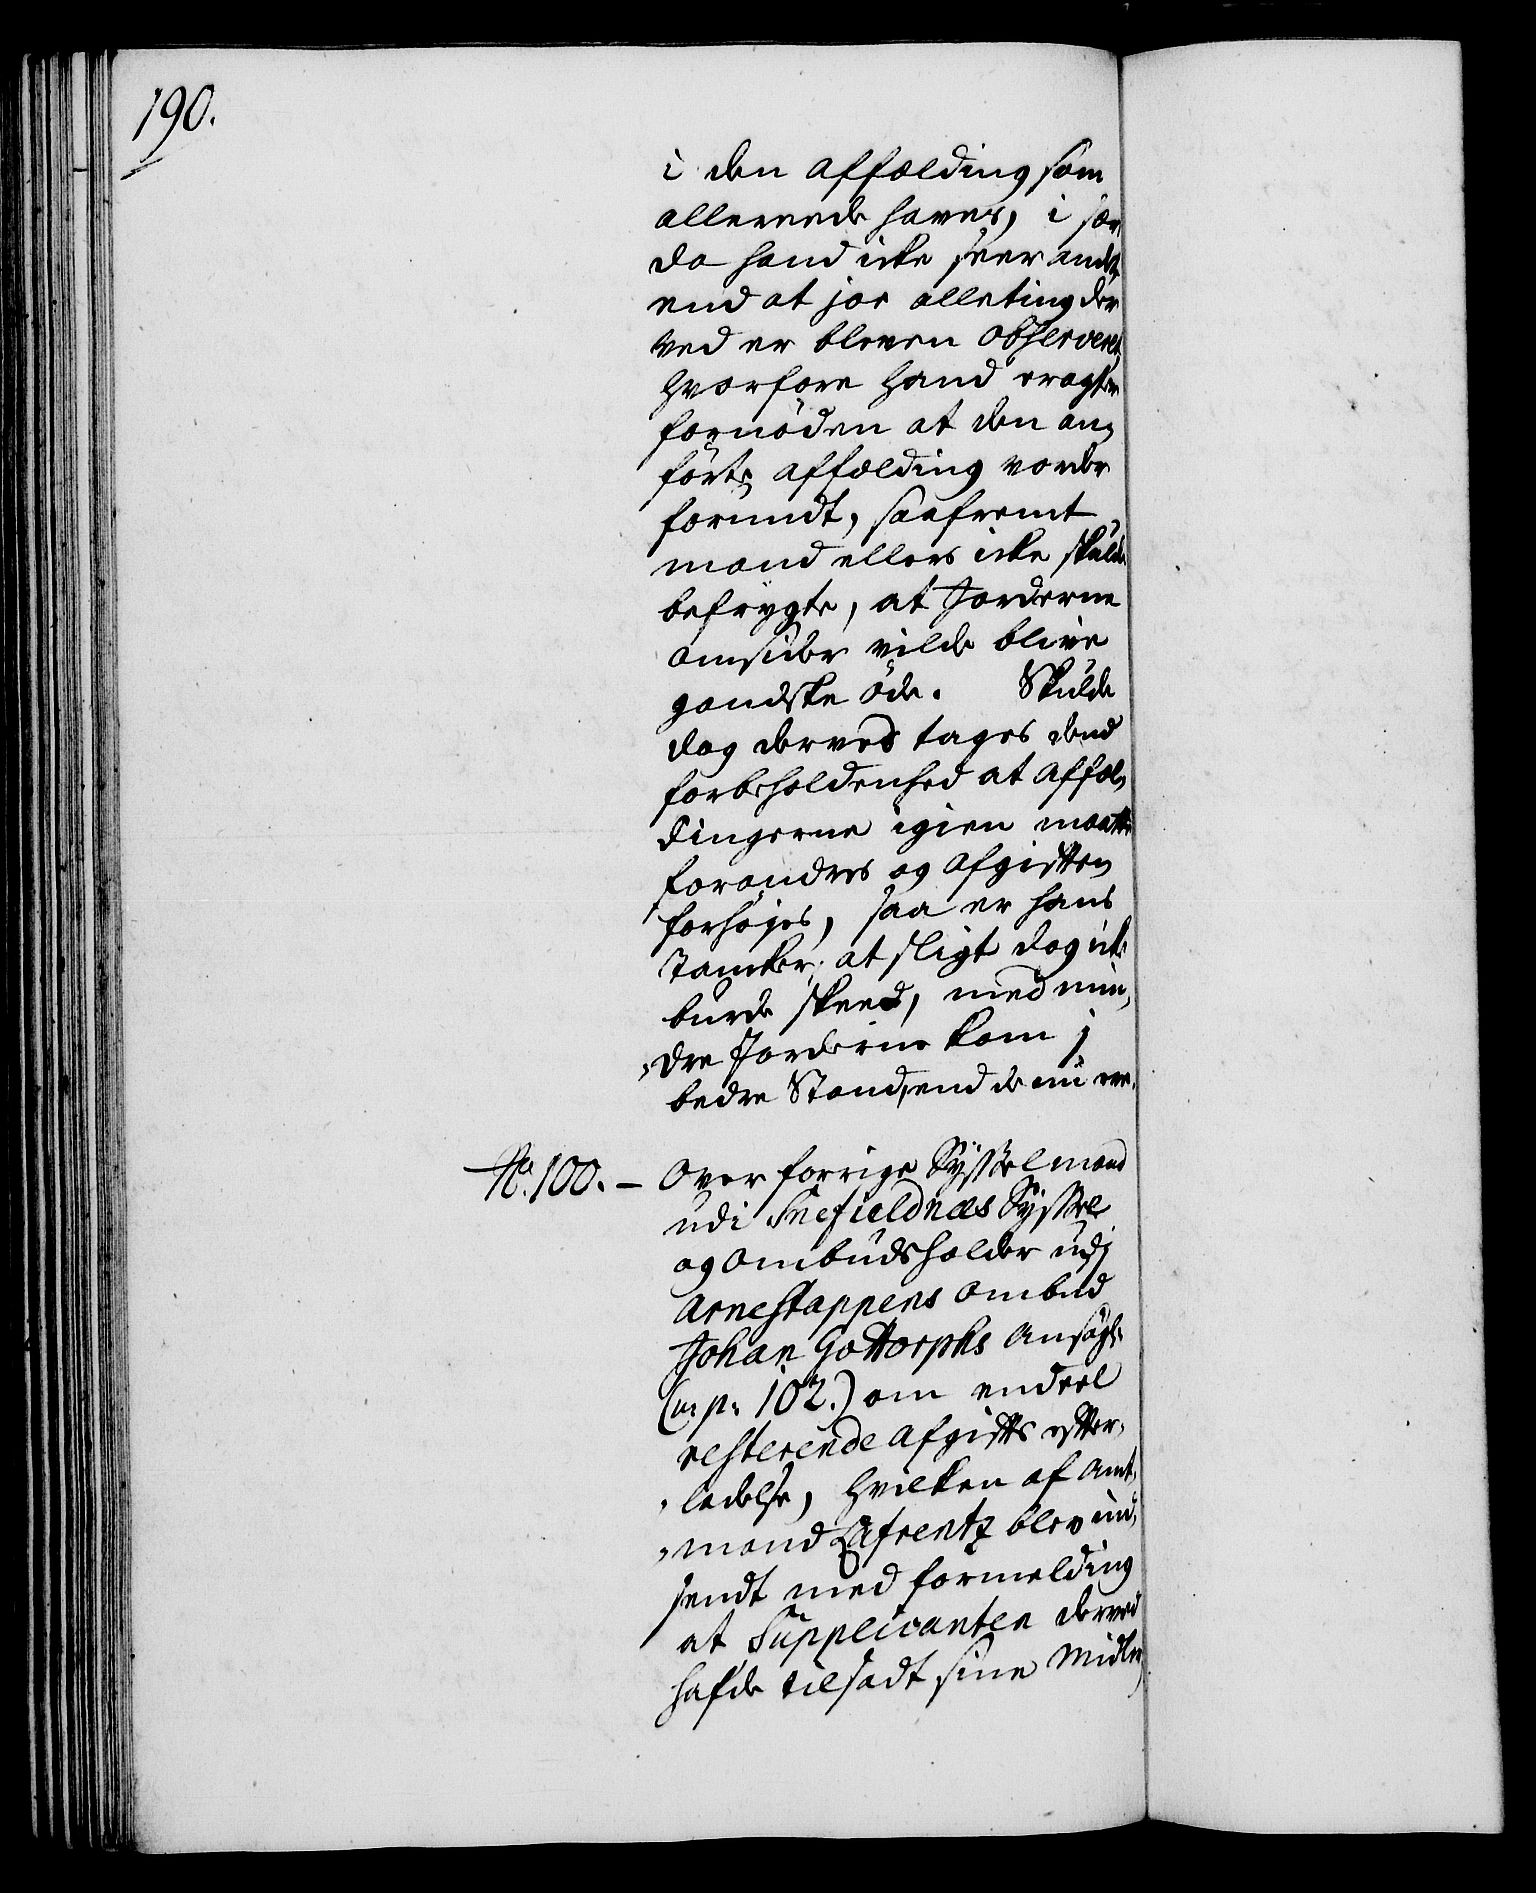 190.
i den affælding som
allereede haves, i sær
da hand icke seer andet,
end at jos alleting der
ved er bleven observeret,
hvorfore hand eragter
fornöden at den an¬
förte affælding vorder
forundt, saafremt
mand ellers icke skulde
befrygte, at Jorderne
omsider vilde blive
gandske öde. Skulde
dog derved tages dend
forbeholdenhed at affæl¬
dingerne igien maatte
forandres og afgiften
forhöjes, saa er hans
Tancker, at sligt dog icke
burde skeed, med min¬
dre Jorderne kom i
bedre Stand, end de nu ere.
No. 100. – Over forrige Sysselmand
udi Snefieldnæs Syssel
og Ombudsholder udi
Arnestappens Ombud
Johan Gottorphs Ansögn:
(u: p: 102.) om endeel
resterende Afgifts efter¬
ladelse, hvilken af Amt¬
mand Lafrentz blev ind¬
sendt med formelding
at Supplicanten derved
hafde tilsadt sine Midler